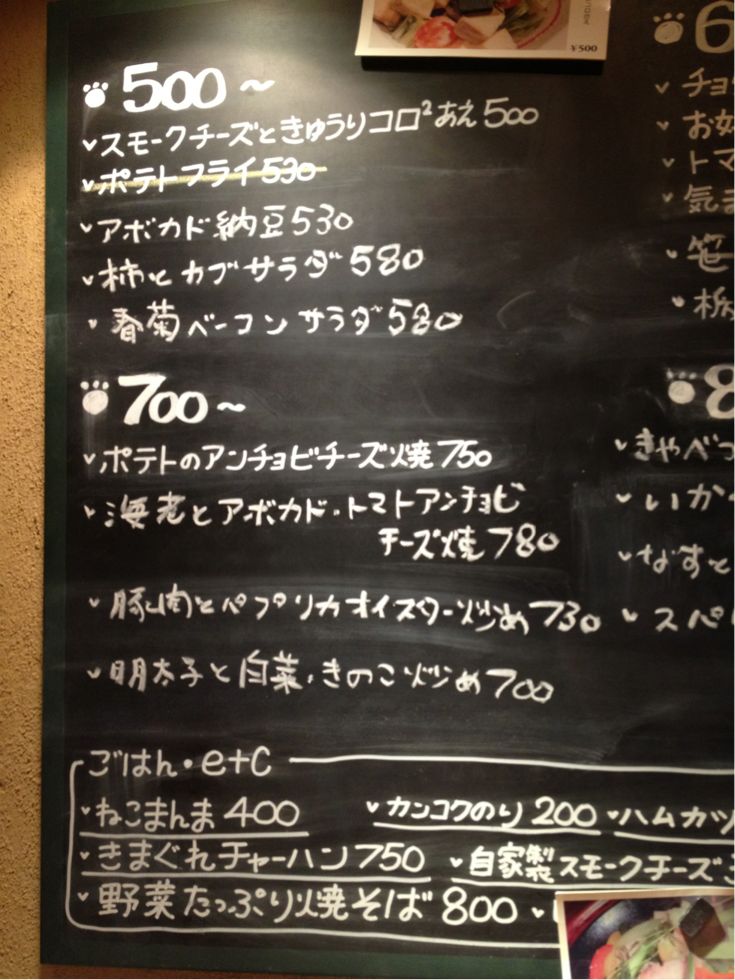 ¥500
500~
スモークチーズときゅうりコロ²あえ500
ポテトフライ530
アボカド納豆530
柿とカブサラダ580
春菊ベーコンサラダ580
700~
ポテトのアンチョビチーズ焼750
海老とアボカド・トマトアンチョビ
チーズ焼780
豚肉とパプリカオイスター炒め730
明太子と白菜・きのこ炒め700
6
チョ
お好
トマ
気ま
笹
栃
8
きゃべつ
いか
なすと
スペ
ごはん・etc
ねこまんま400 カンコクのり200 ハムカツ
きまぐれチャーハン750 自家製スモークチーズ
野菜たっぷり焼そば800